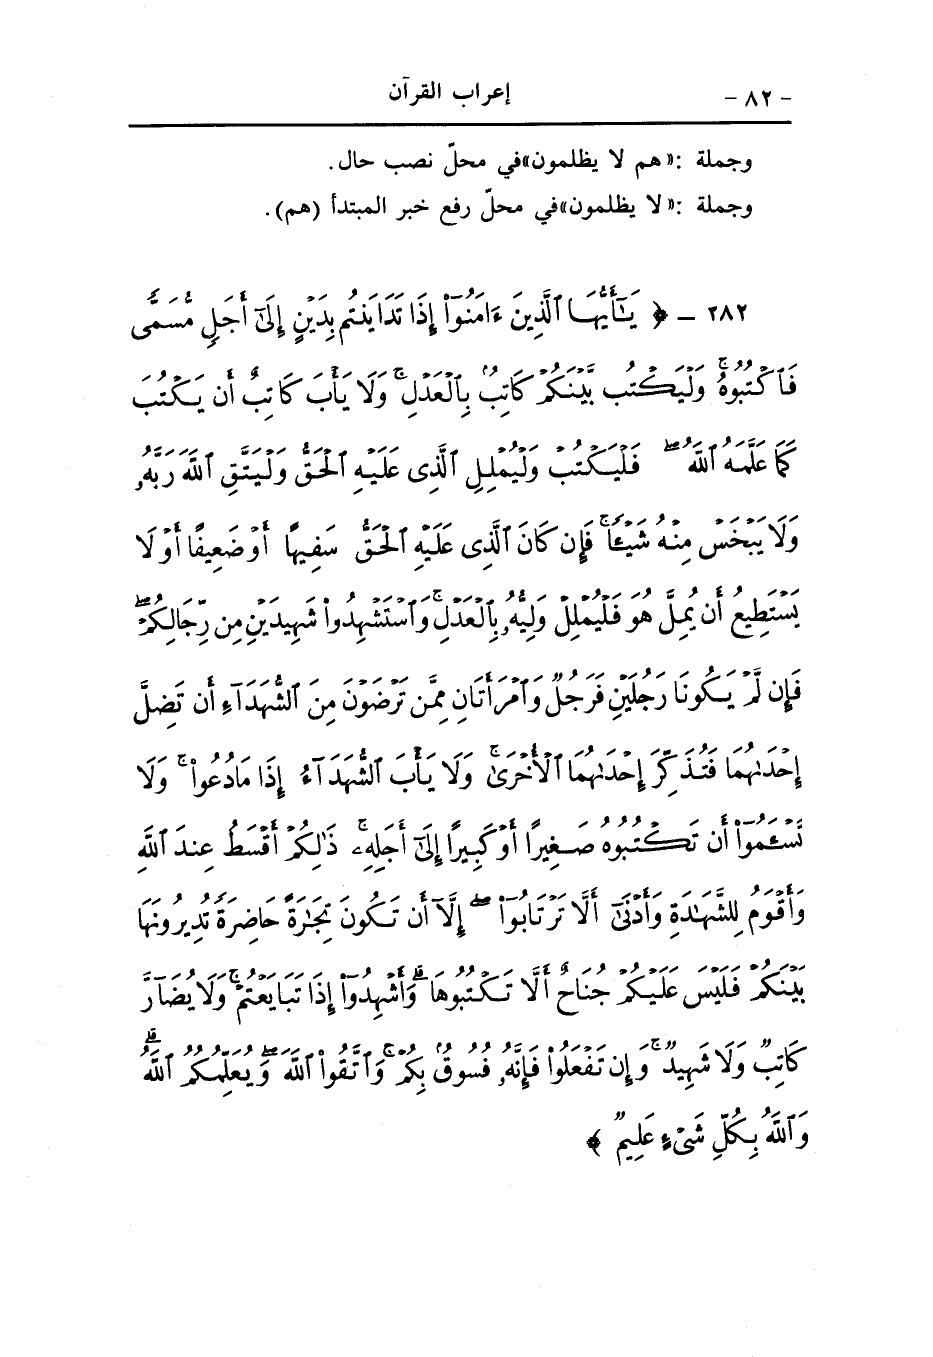 - ٨٢ - إعراب القرآن
وجملة :«هم لا يظلمون»في محلّ نصب حال.
وجملة :«لا يظلمون»في محلّ رفع خبر المبتدأ (هم).
٢٨٢ - ﴿ يَـٰٓأَيُّهَا ٱلَّذِينَ ءَامَنُوٓا۟ إِذَا تَدَايَنتُم بِدَيْنٍ إِلَىٰٓ أَجَلٍ مُّسَمًّى
فَٱكْتُبُوهُ ۚ وَلْيَكْتُب بَّيْنَكُمْ كَاتِبٌۢ بِٱلْعَدْلِ ۚ وَلَا يَأْبَ كَاتِبٌ أَن يَكْتُبَ
كَمَا عَلَّمَهُ ٱللَّهُ ۖ فَلْيَكْتُبْ وَلْيُمْلِلِ ٱلَّذِى عَلَيْهِ ٱلْحَقُّ وَلْيَتَّقِ ٱللَّهَ رَبَّهُۥ
وَلَا يَبْخَسْ مِنْهُ شَيْـًٔا ۚ فَإِن كَانَ ٱلَّذِى عَلَيْهِ ٱلْحَقُّ سَفِيهًا أَوْ ضَعِيفًا أَوْ لَا
يَسْتَطِيعُ أَن يُمِلَّ هُوَ فَلْيُمْلِلْ وَلِيُّهُۥ بِٱلْعَدْلِ ۚ وَٱسْتَشْهِدُوا۟ شَهِيدَيْنِ مِن رِّجَالِكُمْ ۖ
فَإِن لَّمْ يَكُونَا رَجُلَيْنِ فَرَجُلٌ وَٱمْرَأَتَانِ مِمَّن تَرْضَوْنَ مِنَ ٱلشُّهَدَآءِ أَن تَضِلَّ
إِحْدَىٰهُمَا فَتُذَكِّرَ إِحْدَىٰهُمَا ٱلْأُخْرَىٰ ۚ وَلَا يَأْبَ ٱلشُّهَدَآءُ إِذَا مَا دُعُوا۟ ۚ وَلَا
تَسْـَٔمُوٓا۟ أَن تَكْتُبُوهُ صَغِيرًا أَوْ كَبِيرًا إِلَىٰٓ أَجَلِهِۦ ۚ ذَٰلِكُمْ أَقْسَطُ عِندَ ٱللَّهِ
وَأَقْوَمُ لِلشَّهَـٰدَةِ وَأَدْنَىٰٓ أَلَّا تَرْتَابُوٓا۟ ۖ إِلَّآ أَن تَكُونَ تِجَـٰرَةً حَاضِرَةً تُدِيرُونَهَا
بَيْنَكُمْ فَلَيْسَ عَلَيْكُمْ جُنَاحٌ أَلَّا تَكْتُبُوهَا ۗ وَأَشْهِدُوٓا۟ إِذَا تَبَايَعْتُمْ ۚ وَلَا يُضَآرَّ
كَاتِبٌ وَلَا شَهِيدٌ ۚ وَإِن تَفْعَلُوا۟ فَإِنَّهُۥ فُسُوقٌۢ بِكُمْ ۗ وَٱتَّقُوا۟ ٱللَّهَ ۖ وَيُعَلِّمُكُمُ ٱللَّهُ ۗ
وَٱللَّهُ بِكُلِّ شَىْءٍ عَلِيمٌ ﴾